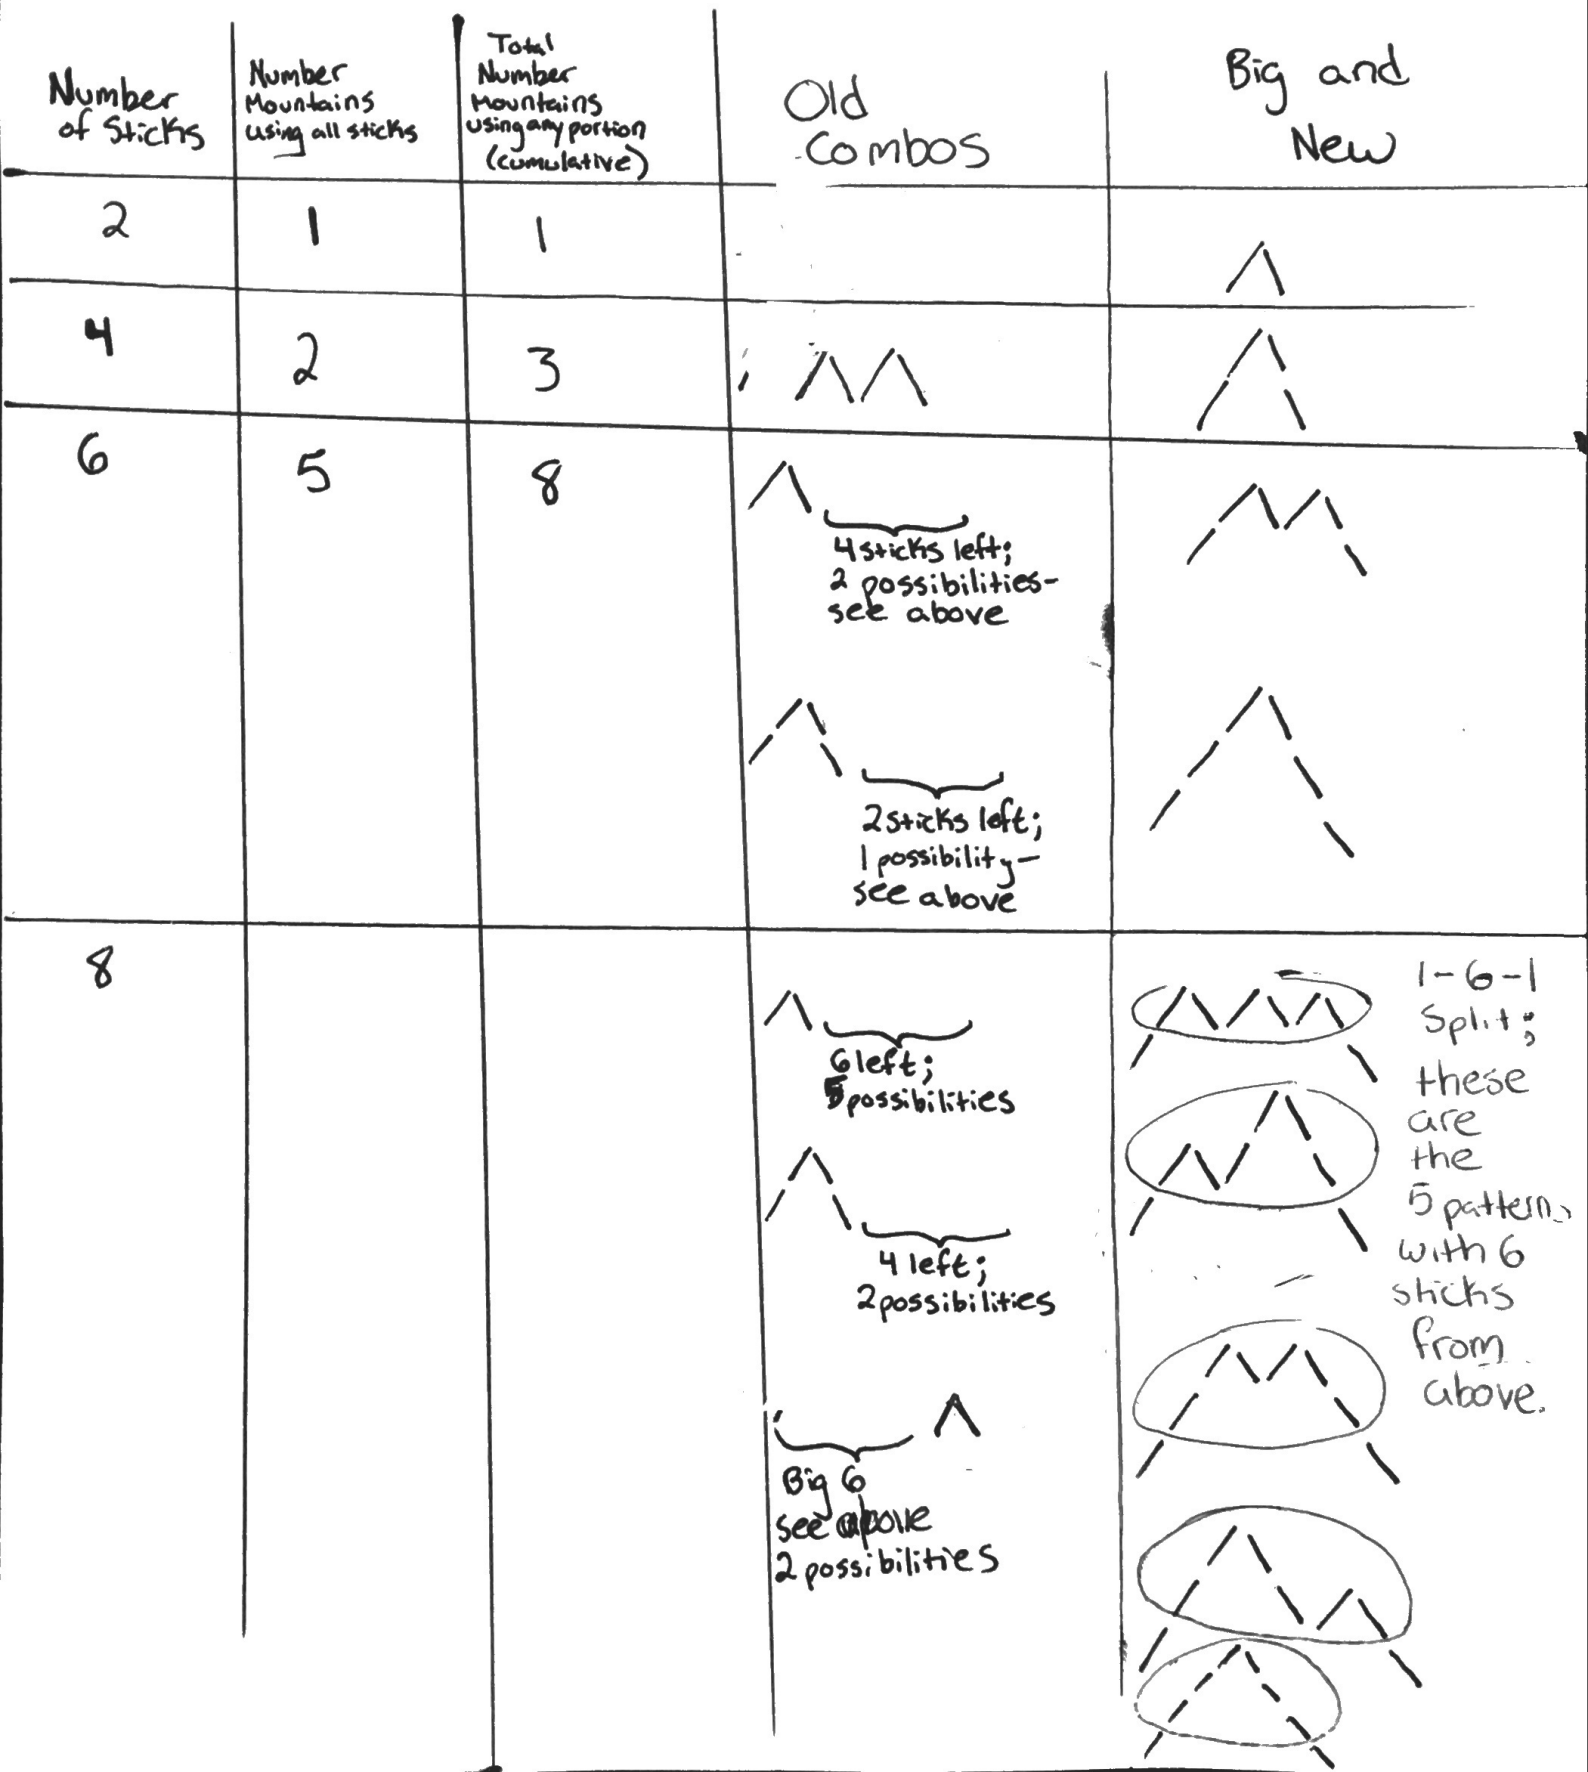 Number
of Sticks
Number
Mountains
using all sticks
Total
Number
Mountains
using any portion
(cumulative)
Old
Combos
Big and
New
2
1
1
4
2
3
6
5
8
4 sticks left;
2 possibilities-
see above
2 sticks left;
1 possibility-
see above
8
6 left;
5 possibilities
4 left;
2 possibilities
Big 6
see above
2 possibilities
1-6-1
Split;
these
are
the
5 patterns
with 6
sticks
from
above.